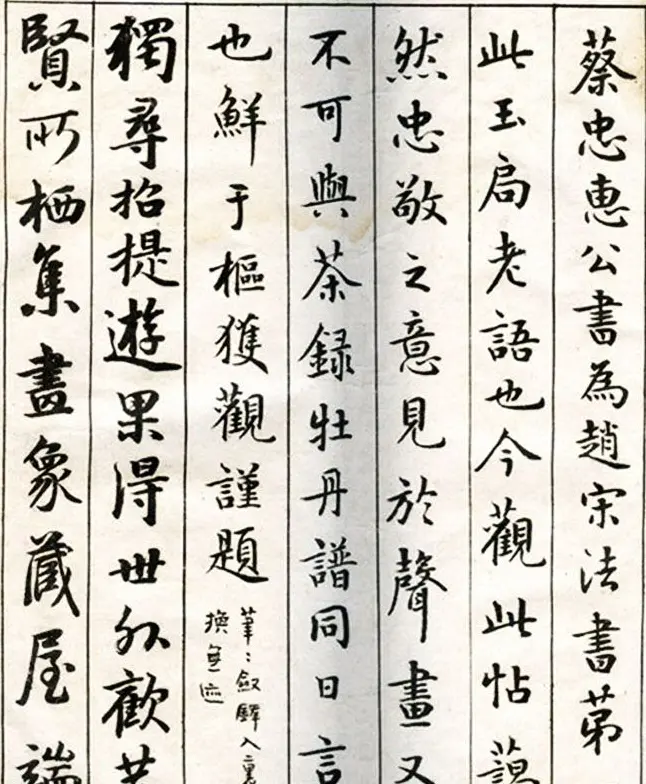 蔡忠恵公書為趙宋法書苐
此玉局老語也今觀此帖藹
然忠敬之意見於聲畫又
不可與茶録牡丹譜同日言
也鮮于樞獲觀謹題
入裏
換無迹
獨尋招提遊果得世外歡
賢所栖集畫象藏屋端